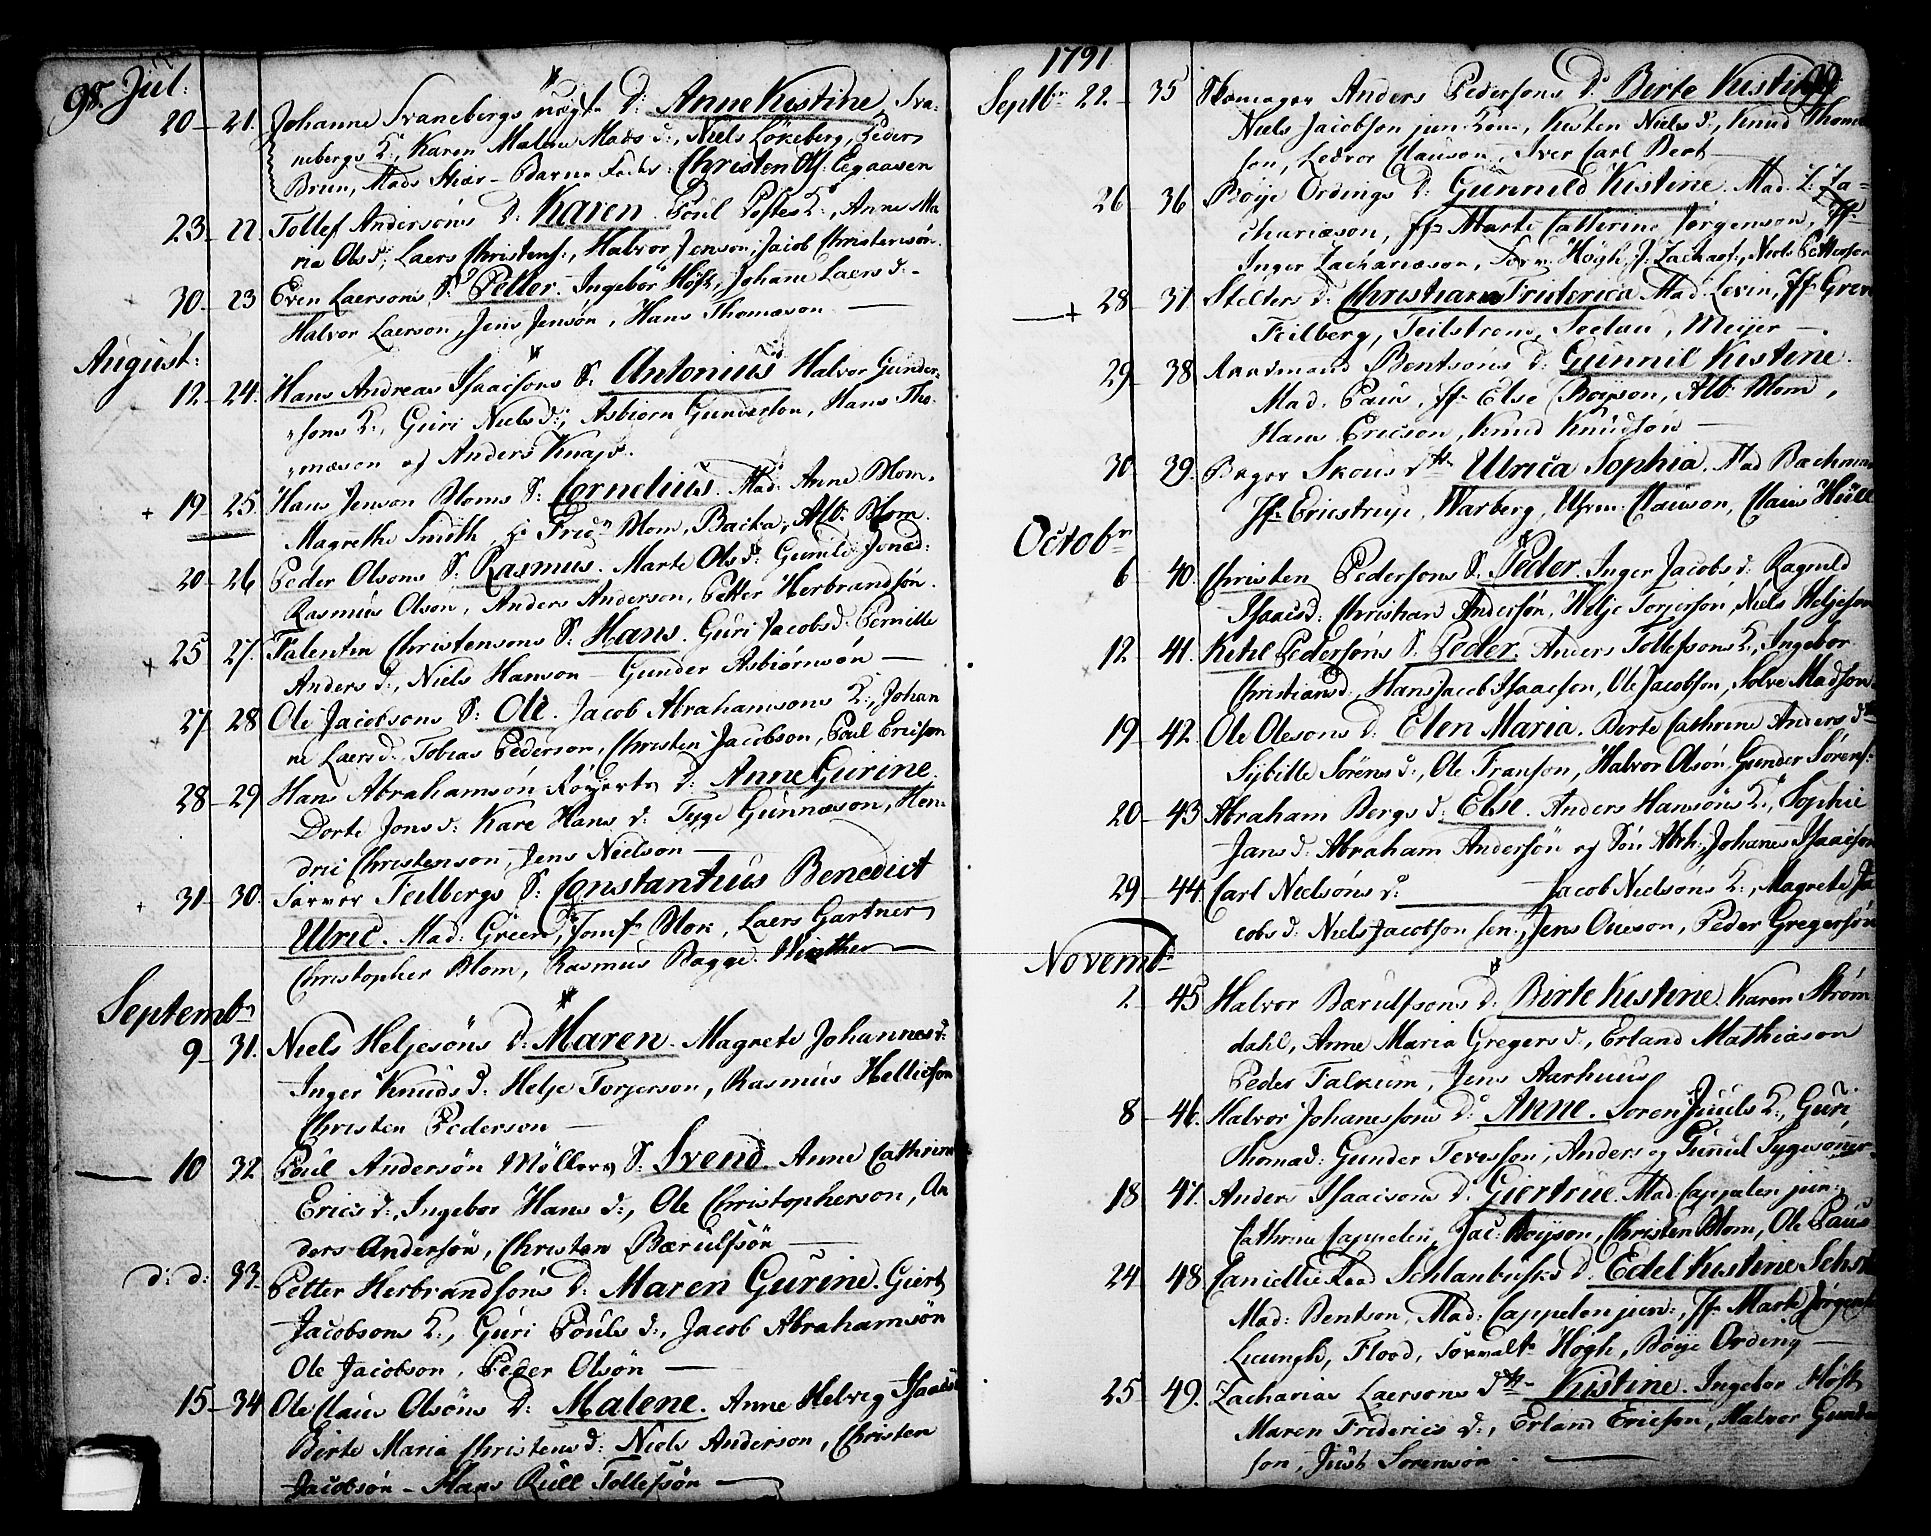 98. Jul:
20 — 21. Johanne Svanebergs uægte D: Anne Kistine, Sva-
nebergs K:, Karen Malene Mads d:, Niels Löneberg, Peder
Brun, Mads Skiær — Barne Fader: Christen Ols: Egaasen
23 — 22. Tollef Andersöns D: Karen. Poul Postes K:, Anne Ma
ria Ols d:, Laers Christens:, Halvor Jenson, Jacob Christensön.
30 — 23 Even Laersons S: Petter. Ingebor Höst, Johane Laers d: —
Halvor Laerson, Jens Jensön, Hans Thomæson —
August:
12 — 24. Hans Andreas Isaacsons S: Antonius Halvor Gunder-
sons K:, Guri Niels d:, Asbiorn Gunderson, Hans Tho-
mæson og Anders Knap.
+ 19 — 25. Hans Jenson Bloms S: Cornelius. Mad: Anne Blom,
Magrethe Smith, Hr Fridr Blom, Backa, Alb: Blom.
20 — 26 Peder Olsons S: Rasmus. Marte Ols d: Gunild Jonæd:
Rasmus Olson, Anders Andersen, Petter Herbrandsön.
+ 25 — 27. Falentin Christensons S: Hans. Guri Jacobs d: Pernille
Anders d:, Niels Hanson — Gunder Asbiörnsön —
27 — 28 Ole Jacobsons S: Ole. Jacob Abrahamsons K:, Johan
ne Laers d: Tobias Pederson, Christen Jacobson, Poul Ericson
28 — 29 Hans Abrahamsön Röyerts D: Anne Gurine.
Dorte Jons d: Kare Hans d: Tyge Gunnæson, Hen
dric Christenson, Jens Nielson —
+ 31 — 30. Farver Feilbergs S: Constantius Benedict
Ulric. Mad: Green, Jomfr Blom, Laers Gartner
Christopher Blom, Rasmus Bagge. Winther —
Septembr
9 — 31. Niels Heljesöns D: Maren. Magrete Johannes d:
Inger Knuds d: Helje Torjerson, Rasmus Hellieson
Christen Pederson —
— 10 32. Poul Andersön Möllers S: Svend. Anne Cathrine
Erics d:, Ingebor Hans d:, Ole Christopherson, An
ders Andersön, Christen Bærulfsön —
d: d: 33. Petter Herbrandsöns D: Maren Gurine. Giert
Jacobsons K:, Guri Pouls d:, Jacob Abrahamsön
Ole Jacobson, Peder Olsön —
15 — 34 Ole Claus Olsöns D: Malene. Anne Helvig Isaacs d
Birte Maria Christens d: Niels Anderson, Christen
Jacobsön — Hans Rull Tollefsön —
1791
99
Septbr 22 — 35 Skomager Anders Pedersons D: Birte Kistine
Niels Jacobson jun: Kone, Kisten Niels d:, Knud Thomæ
son, Ledvor Clauson, Iver Carl Bert —
26 36 Böye Ordings D: Gunnild Kistine. Mad: Z: Za-
chariæson, Jfr Marte Cathrine Jörgenson, Jfr
Inger Zachariæson, Forv: Högh, J: Zachars:, Niels Petterson
— + 28 — 37 Stelters d: Christiana Friderica Mad: Levin, Jfr Green
Feilberg, Feilstrom, Seelau, Meijer —
29 — 38. Bentsöns D: Gunnil Kistine.
Mad: Paus, Jfr Else Boyson, Alb: Blom,
Hans Ericson, Knud Knudsön —
30 — 39. Bager Skous dtr Ulrica Sophia. Mad Bachman
Jfr Ericstrup, Warberg, Clauson, Claus Hüll
Octobr
6 — 40. Christen Pedersons S: Peder. Inger Jacobs d: Ragnild
Isaacs d: Christian Andersön, Helje Torjerson, Niels Heljeson
12 — 41. Kihl Pedersöns S: Peder. Anders Tollefsons K:, Ingebor
Christians d:, Hans Jacob Isaacson, Ole Jacobson, Solve Madson
19 — 42. Ole Olesons d: Elen Maria. Berte Cathrine Anders dtr
Sybille Sörens d:, Ole Franson, Halvor Olsön, Gunder Sörens:
20 — 43 Abraham Bergs d: Else. Anders Hansöns K:, Sophie
Jans d: Abraham Andersön og Sön Abrh:, Johannes Isaacson
29 — 44. Carl Nielsöns d: ——— Jacob Nielsöns K:, Magrete Ja
cobs d: Niels Jacobson sen:, Jens Oueson, Peder Gregersön
Novembr
2 — 45 Halvor Bærulfsons D: Birte Kistine Karen Ström
dahl, Anne Maria Gregers d:, Erland Mathiason
Peder Falkum, Jens Aarhuus
8 — 46. Halvor Johannessons D: Anne. Soren Juuls K:, Guri
Thomæd: Gunder Tevesson, Anders og Gunul Tygesöner
18 — 47. Anders Isaacsons D. Giertrue. Mad: Cappelen jun:,
Cathrine Cappelen, Jac: Boyson, Christen Blom, Ole Paus
24 — 48 Cancellie Raad Schlanbusks D: Edel Kistine Sehst
Mad: Bentson, Mad: Cappelen jun:, Jfr Marte Jörgens
Lieungh, Flood, Forvaltr Högh, Böye Ording —
25 — 49. Zacharias Laersons dtr Kistine. Ingebor Höst
Maren Friderics d:, Erland Ericson, Halvor Gunder
son, Just Sörensön —